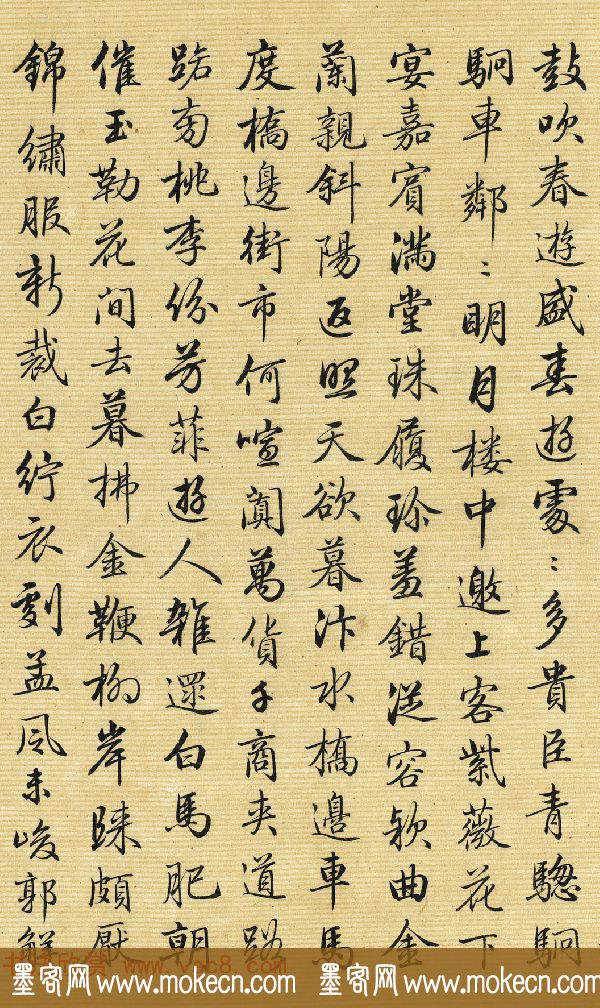 鼓吹春遊盛春遊處:多貴臣青驄駉
駉車鄰:明月楼中邀上客紫薇花下
宴嘉賓滿堂珠履珍羞錯従容欵曲金
蘭親斜陽返照天欲暮汴水橋邊車馬
度橋邊街市何喧闐萬貨千商夹道路
路旁桃李份芳菲遊人雜還白馬肥朝
催玉勒花间去暮拂金鞭柳岸
錦繡服新裁白紵衣劇孟风未峻郭解
墨客网 www.mokecn.com 墨客网 www.mokecn.com